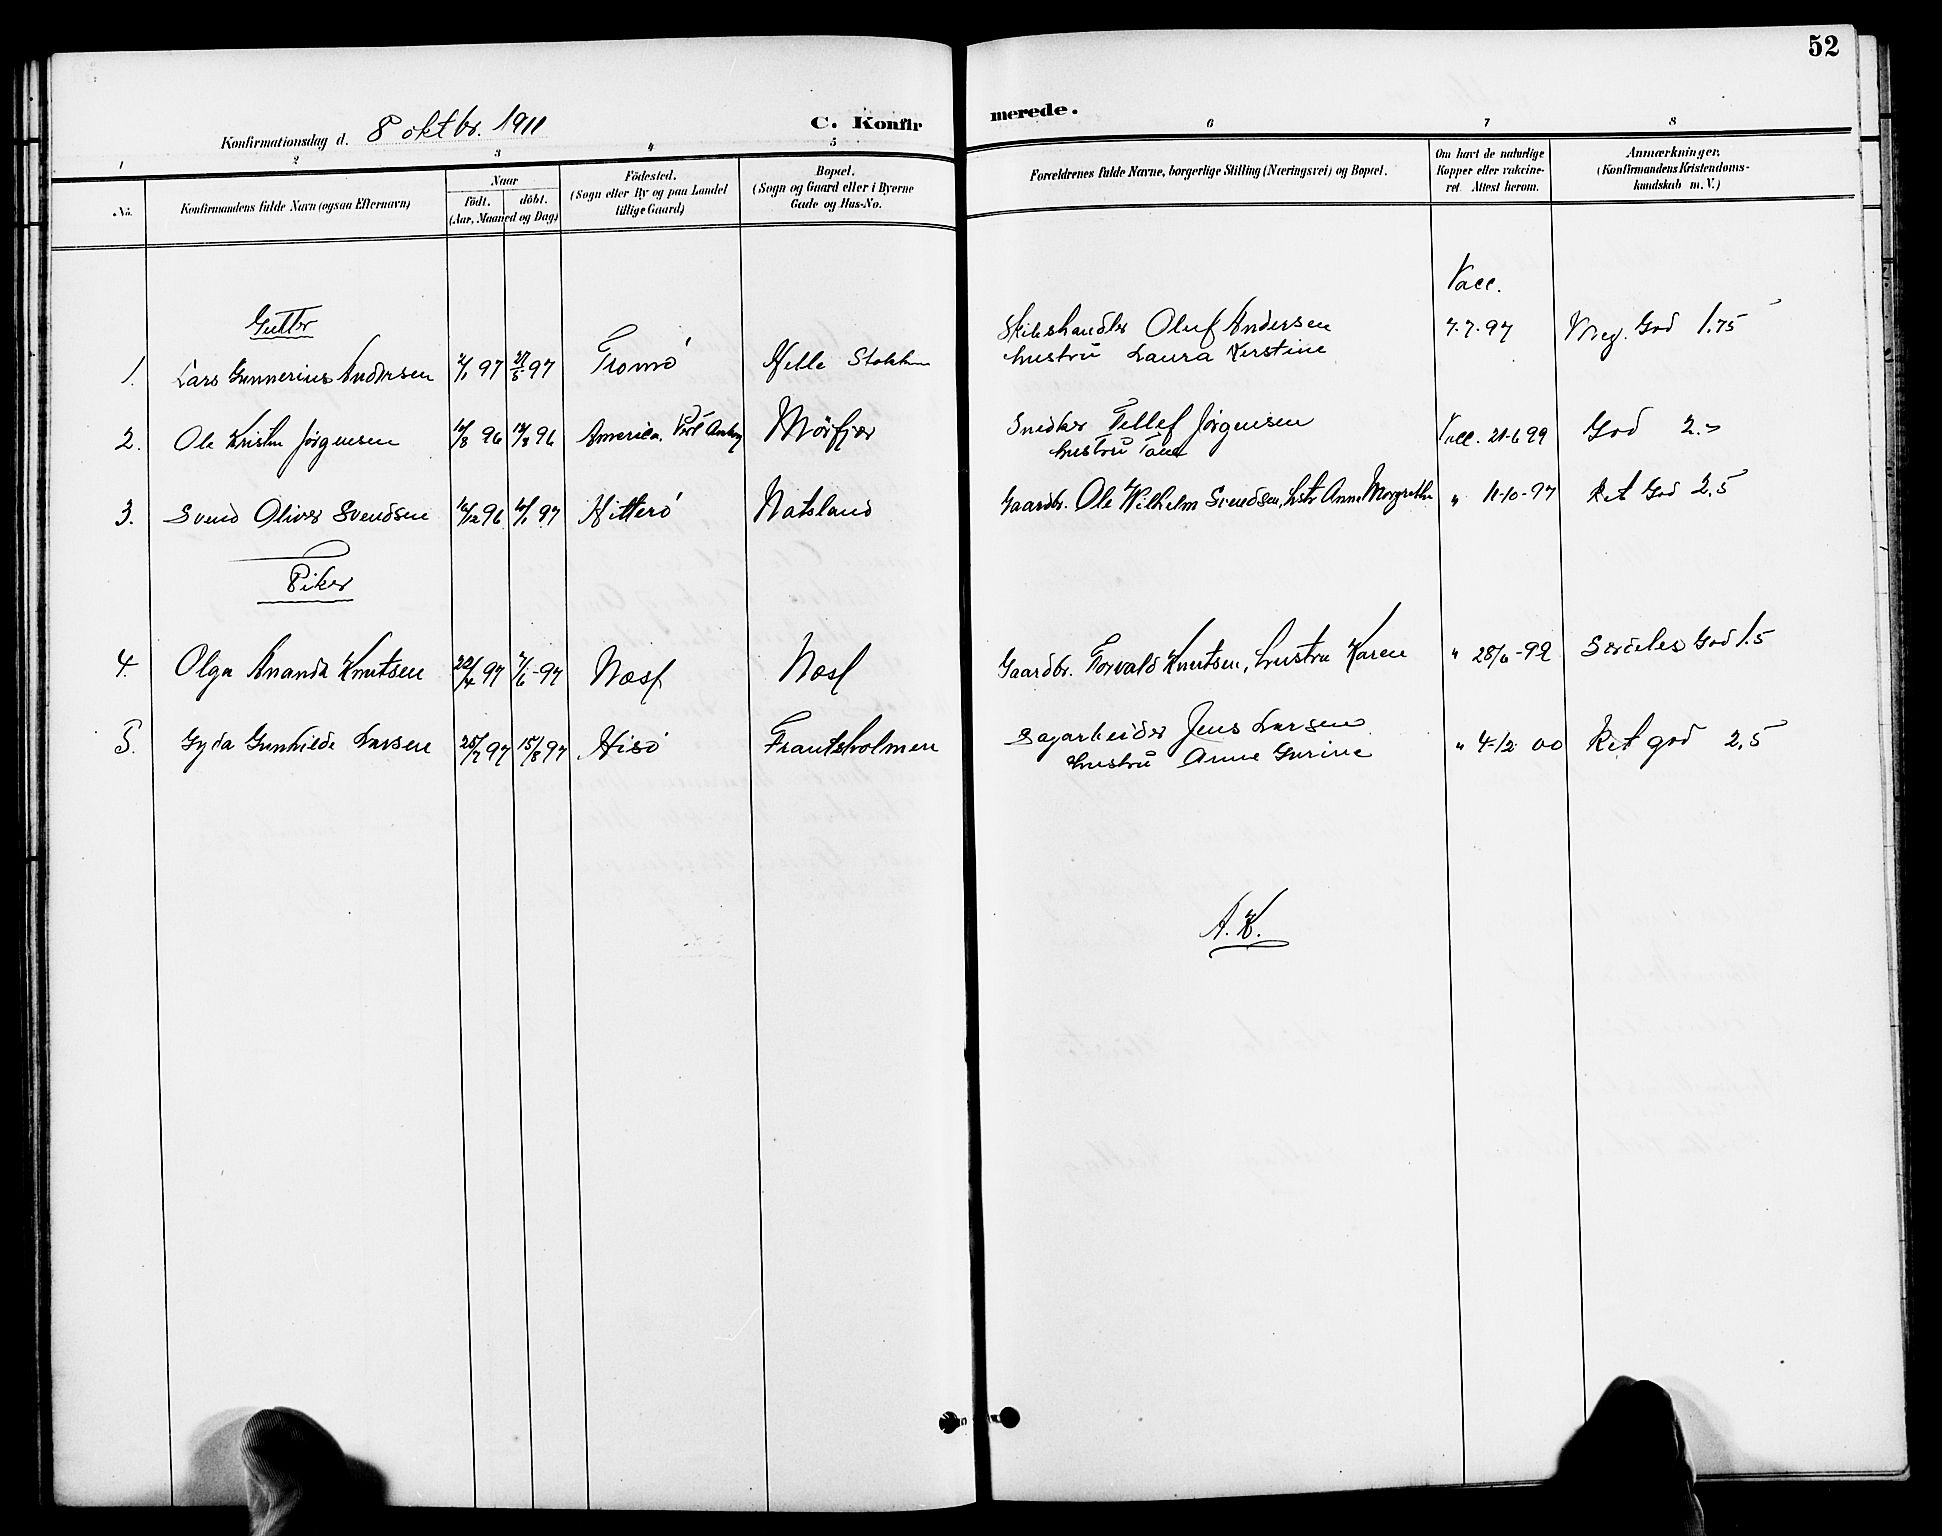 52
Konfirmationsdag d. 8 oktbr. 1911
C. Konfir merede.
1 2 3 4 5 6 7 8
No.
Konfirmandens fulde Navn (ogsaa Efternavn)
Naar
født. døbt.
(Aar, Maaned og Dag)
Fødested.
(Sogn eller By og paa Landet
tillige Gaard)
Bopæl.
(Sogn og Gaard eller i Byerne
Gade og Hus-No.
Forældrenes fulde Navne, borgerlige Stilling (Næringsvei) og Bopæl.
Om havt de naturlige
Kopper eller vakcine-
ret. Attest herom.
Anmærkninger.
(Konfirmandens Kristendoms-
kundskab m. V.)
Gutter
1. Lars Gunnerius Andersen 97 27/5 97 Tromø Helle Skibshandler Oluf Andersen
hustru Laura Kerstine
Vacc.
7.7.97 Meg. God 1.75
2. Ole Kristen Jørgensen 96 96 America, Mørfjær Snidker Tellef Jørgensen
hustru
Vacc. 21-6 99 God 2.-
3. Svend Oliver Svendsen 96 97 Hitterø Natsland Gaardbr. Ole Wilhelm Svendsen, hstr Anne Margrethe " 11-10-97 Ret God 2.5
Piker
4. Olga Ananda Knutsen 22/4 97 7/6-97 Næsf Næsf Gaardbr. Torvald Knutsen, hustru Karen " 28/6-99 Særdeles God 1.5
5. Gyda Gunhilde Larsen 25/7 97 15/8 97 Hisø Frantsholmen Sagarbeider Jens Larsen
hustru Anne Gurine
" 4-12 00 Ret god 2,5
A. K.